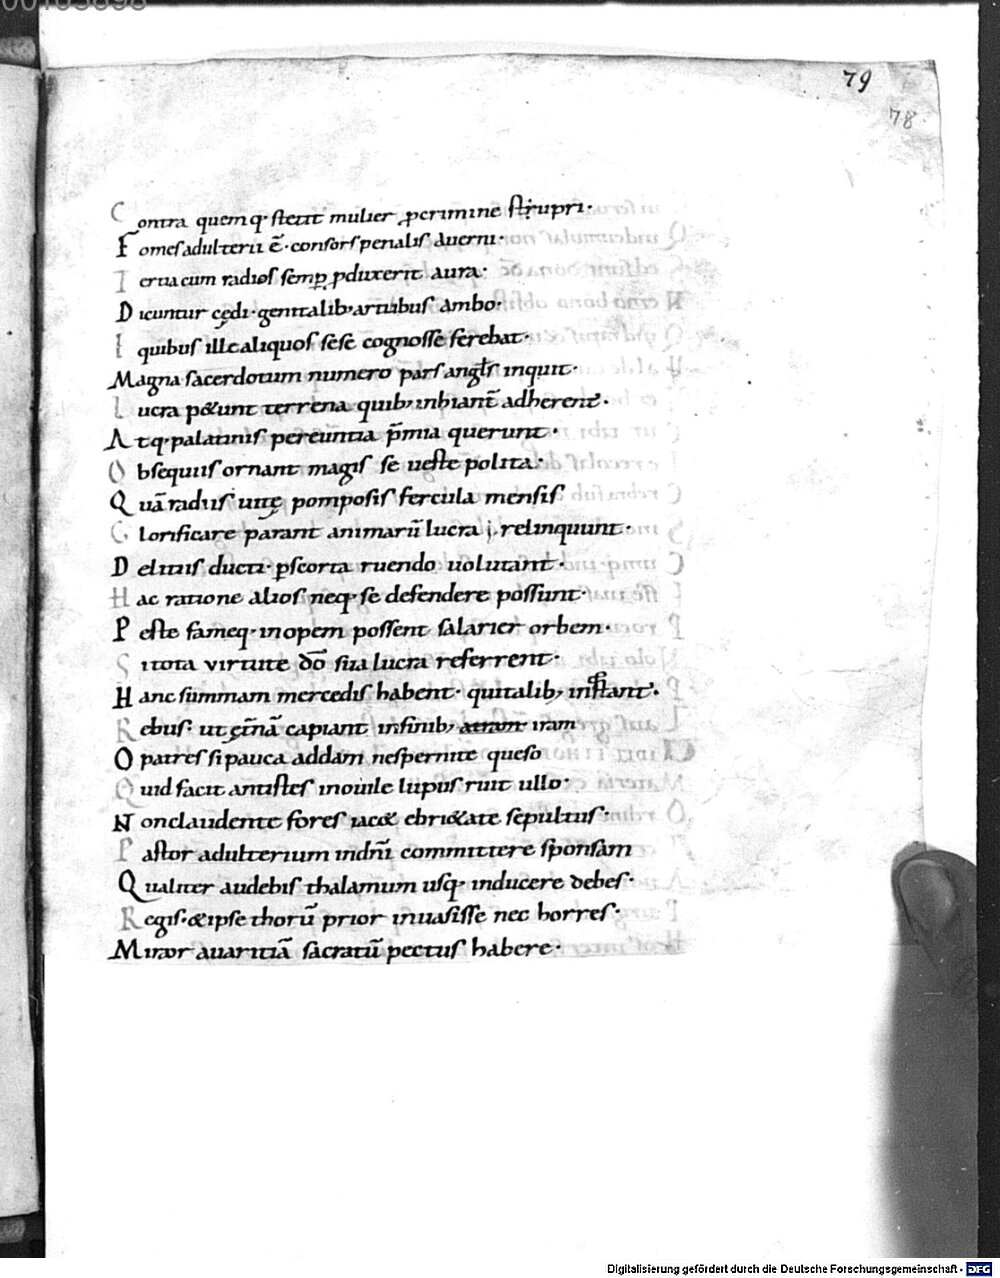 00105098
79
78
Contra quemq· stetit mulier p crimine strupri·
Fomes adulterii ē· consors penalis averni·
Tertia cum radios semp pduxerit aura·
Dicuntur cędi· genitalib; artubus ambo·
I quibus ille aliquos sese cognosse ferebat·
Magna sacerdotum numero pars angls inquit·
Lucra p&unt terrena quib; inhiant adherent·
Atq· palatinis pereuntia p̄mia querunt·
Obsequiis ornant magis se ueste polita·
Quā radiis uitę pomposis fercula mensis
Glorificare parant animarū lucra relinquunt·
Delitiis ducti· p scorta ruendo uolutant·
Hac ratione alios neq· se defendere possunt·
Peste fameq· inopem possent salarier orbem·
Si tota virtute dō sua lucra referrent·
Hanc summam mercedis habent· qui talib; instant·
Rebus· ut ęt̄nā capiant in finib; iram
O patres si pauca addam ne spernite queso
Quid facit antistes in ouile lupus ruit ullo·
Non claudente fores iac& ebri&ate sepultus·
Pastor adulterium in dn̄i committere sponsam
Qualiter audebis thalamum usq· inducere debes·
Regis· & ipse thorū prior inuasisse nec horres·
Miror auaritiā sacratū pectus habere·
Digitalisierung gefördert durch die Deutsche Forschungsgemeinschaft - DFG